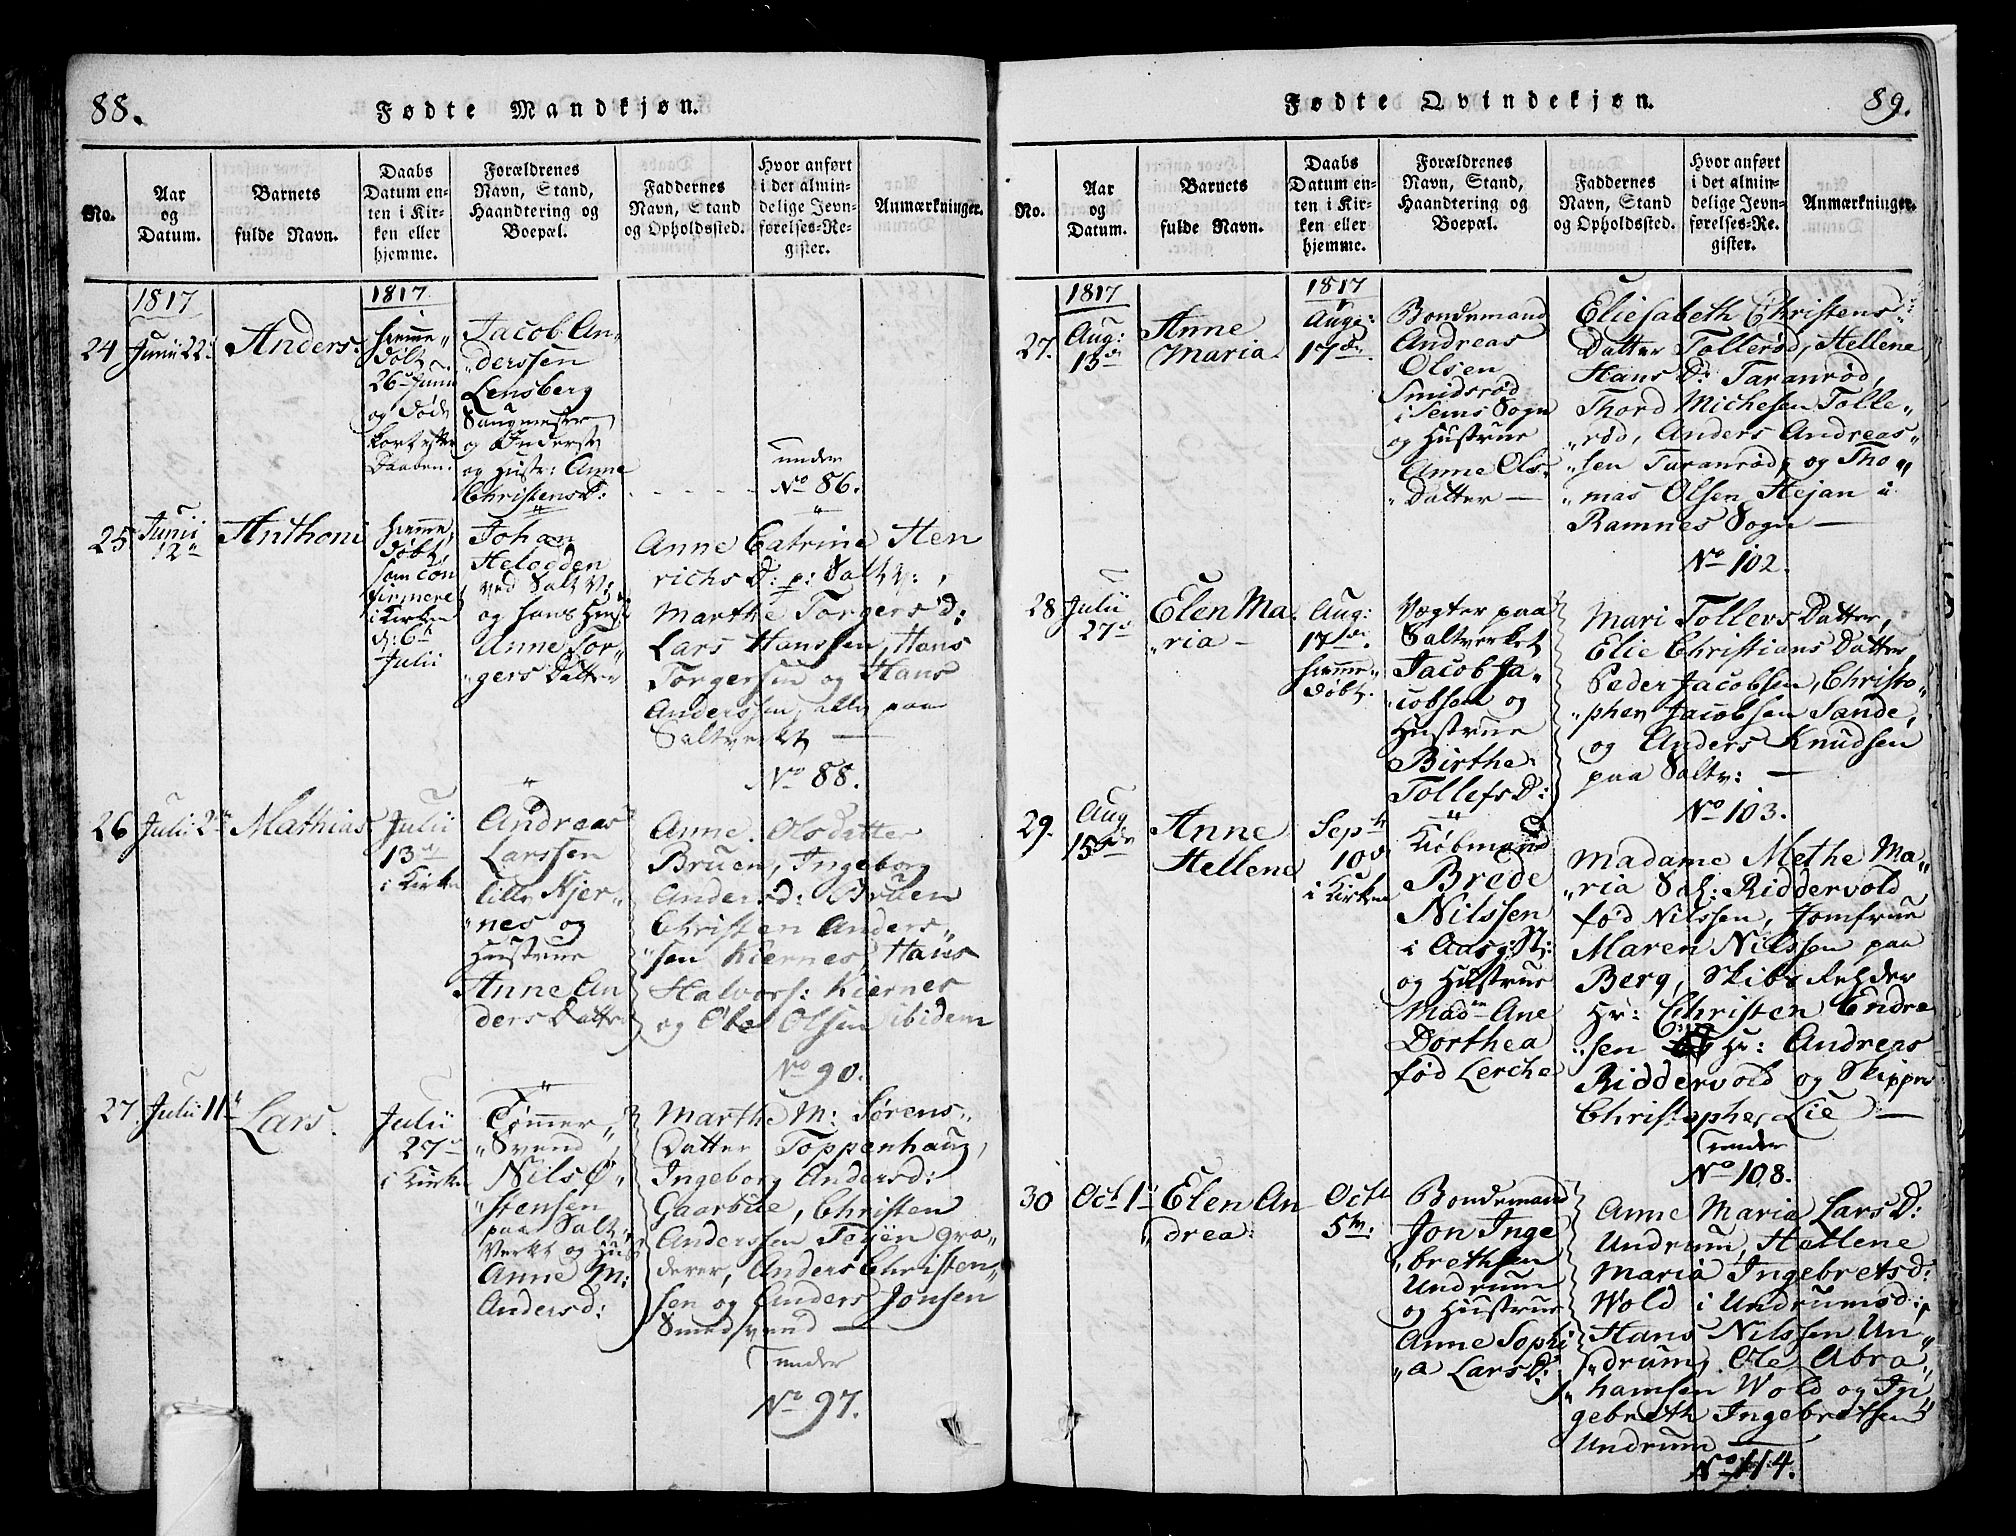 88.
Fødte Mandkjøn.
No.
Aar
og
Datum.
Barnets
fulde Navn.
Daabs
Datum en-
ten i Kir-
ken eller
hjemme.
Forældrenes
Navn, Stand,
Haandtering og
Boepæl.
Faddernes
Navn, Stand
og Opholdssted.
Hvor anført
i det almin-
delige Jevn-
førelses-Re-
gister.
Anmærkninger.
1817
1817
24
Junii 22
Anders.
hiemme"
døbt
26 Junii
og døde
kort efter
Daaben.
Jacob An"
"derssen
Lensberg
Saugmester
og
og Hustr: Anne
Christens D:
under
No 86.
25
Junii
12
Anthoni
hiemme
døbt,
som con
firmere
i Kirken
d: 6
Julii
Johan
Heloeden
ved Salt V:
og hans Hus:
Anne Tor"
"gers Datter
Anne Catrine Hen
richs D: p: Salt V:,
Marthe Torgers d:
Lars Hanssen, Hans
Torgersen og Hans
Anderssen, alle paa
Saltverket
No 88.
26
Julii 2
Mathias
Julii
13
i Kirken
Andreas
Larssen
lille Kjer"
"nes og
Hustrue
Anne An
ders Datter
Anne Olsdatter
Bruen, Ingeborg
Anders d: Bruen
Christen Anders"
"sen Kiernes, Hans
Halvors: Kiernes
og Ole Olsen ibidem
No 90.
27.
Julii 11
Lars.
Julii
27
i Kirken
Tømmer"
"Svend
Nils Ø"
"stensen
paa Salt"
Verket og Hus
Anne M:
Anders d:
Marthe M: Sørens"
Datter Toppenhaug,
Ingeborg Anders d:
Gaarboe, Christen
Anderssen Tøyen Gra"
derer, Anders Christen"
sen og Anders Jonsen
Smedsvend
under
No 97.
89.
Fødte Qvindekjøn.
No.
Aar
og
Datum.
Barnets
fulde Navn.
Daabs
Datum en-
ten i Kir-
ken eller
hjemme.
Forældrenes
Navn, Stand,
Haandtering og
Boepæl.
Faddernes
Navn, Stand
og Opholdssted.
Hvor anført
i det almin-
delige Jevn-
førelses-Re-
gister.
Anmærkninger.
1817
1817
27.
Aug:
13
Anne
Maria.
Aug:
17
Bondemand
Andreas
Olsen
Smidsrød
i Sems Sogn
og Hustrue
Anne Ols"
"Datter
Eliesabeth Christens"
Datter Tollerød, Hellene
Hans D: Taranrød,
Thord Michesen Tolle"
"rød, Anders Andreas"
"sen Taranrød, og Tho"
"mas Olsen Hejan i
Ramnes Sogn
No 102.
28
Julii
27
Elen Ma"
"ria
Aug:
17
hiemme"
døbt.
Vegter paa
Saltverket
Jacob Ja"
"cobsen og
Hustrue
Birthe
Tollefs D:
Mari Tollers Datter,
Elie Christians Datter,
Peder Jacobsen, Christo"
"pher Jacobsen Sande,
og Anders Knudsen
paa Saltv:
No 103.
29.
Aug
15
Anne
Hellene
Sept
10
i Kirken
Kiøbmand
Brede
Nilssen
i Aasg: St:
og Hustrue
Mad Ane
Dorthea
fød Lerche
Madame Methe Ma"
"ria Sal: Riddervold
fød Nilssen, Jomfrue
Maren Nilssen paa
Berg, Skibs Rehder
Hr: Christen Endre
"sen Hr: Andreas
Riddervold og Skipper
Christopher Lie
under
No 108.
30
Oct 1
Elen An
"drea:
Oct
5
Bondemand
Jon Inge
"brethsen
Undrum
og Hustrue
Anne Sophi
"a Lars D:
Anne Maria Lars D:
Undrum, Hellene
Maria Ingebrets d:
Wold i Undrums d:,
Hans Nilssen Un"
"drum, Ole Abra"
"hamsen Wold og In
gebreth Ingebretsen
Undrum
No 114.